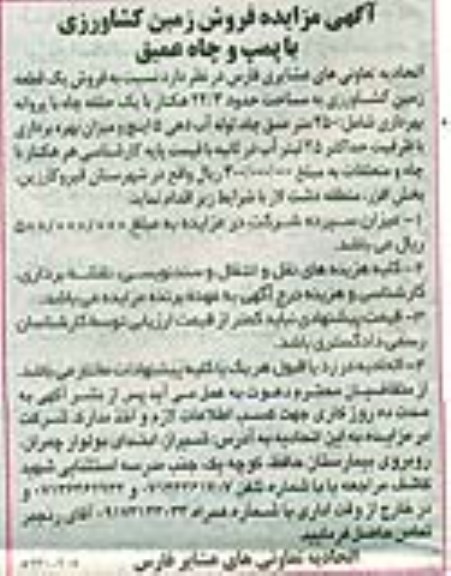 آگهی مزایده فروش زمین کشاورزی
با پمپ و چاه عمیق
اتحادیه تعاونی های عشایری فارس در نظر دارد نسبت به فروش یک قطعه
زمین کشاورزی به مساحت حدود ۲۲/۳ هکتار با یک حلقه چاه با پروانه
بهره‌برداری شامل: ۲۵۰ متر عمق چاه، لوله آب دهی ۵ اینچ و میزان بهره برداری
با ظرفیت حداکثر ۲۵ لیتر آب در ثانیه با قیمت پایه کارشناسی هر هکتار با
چاه و متعلقات به مبلغ ریال واقع در شهرستان قیروکارزین،
بخش افزر، منطقه دشت لار با شرایط زیر اقدام نماید:
۱- میزان سپرده شرکت در مزایده به مبلغ ۵۰۰/۰۰۰/۰۰۰
ریال می باشد.
۲- کلیه هزینه های نقل و انتقال و سندنویسی، نقشه برداری،
کارشناسی و هزینه درج آگهی به عهده برنده مزایده می باشد.
۳- قیمت پیشنهادی نباید کمتر از قیمت ارزیابی توسط کارشناسان
رسمی دادگستری باشد.
۴- اتحادیه در رد یا قبول هر یک یا کلیه پیشنهادات مختار می باشد.
از متقاضیان محترم دعوت به عمل می آید پس از نشر آگهی به
مدت ده روز کاری جهت کسب اطلاعات لازم و اخذ مدارک شرکت
در مزایده به این اتحادیه به آدرس: شیراز، ابتدای بولوار چمران،
روبروی بیمارستان حافظ، کوچه یک، جنب مدرسه استثنایی شهید
مراجعه یا با شماره تلفن و
در خارج از وقت اداری با شماره همراه آقای رنجبر
تماس حاصل فرمایید.
اتحادیه تعاونی های عشایر فارس